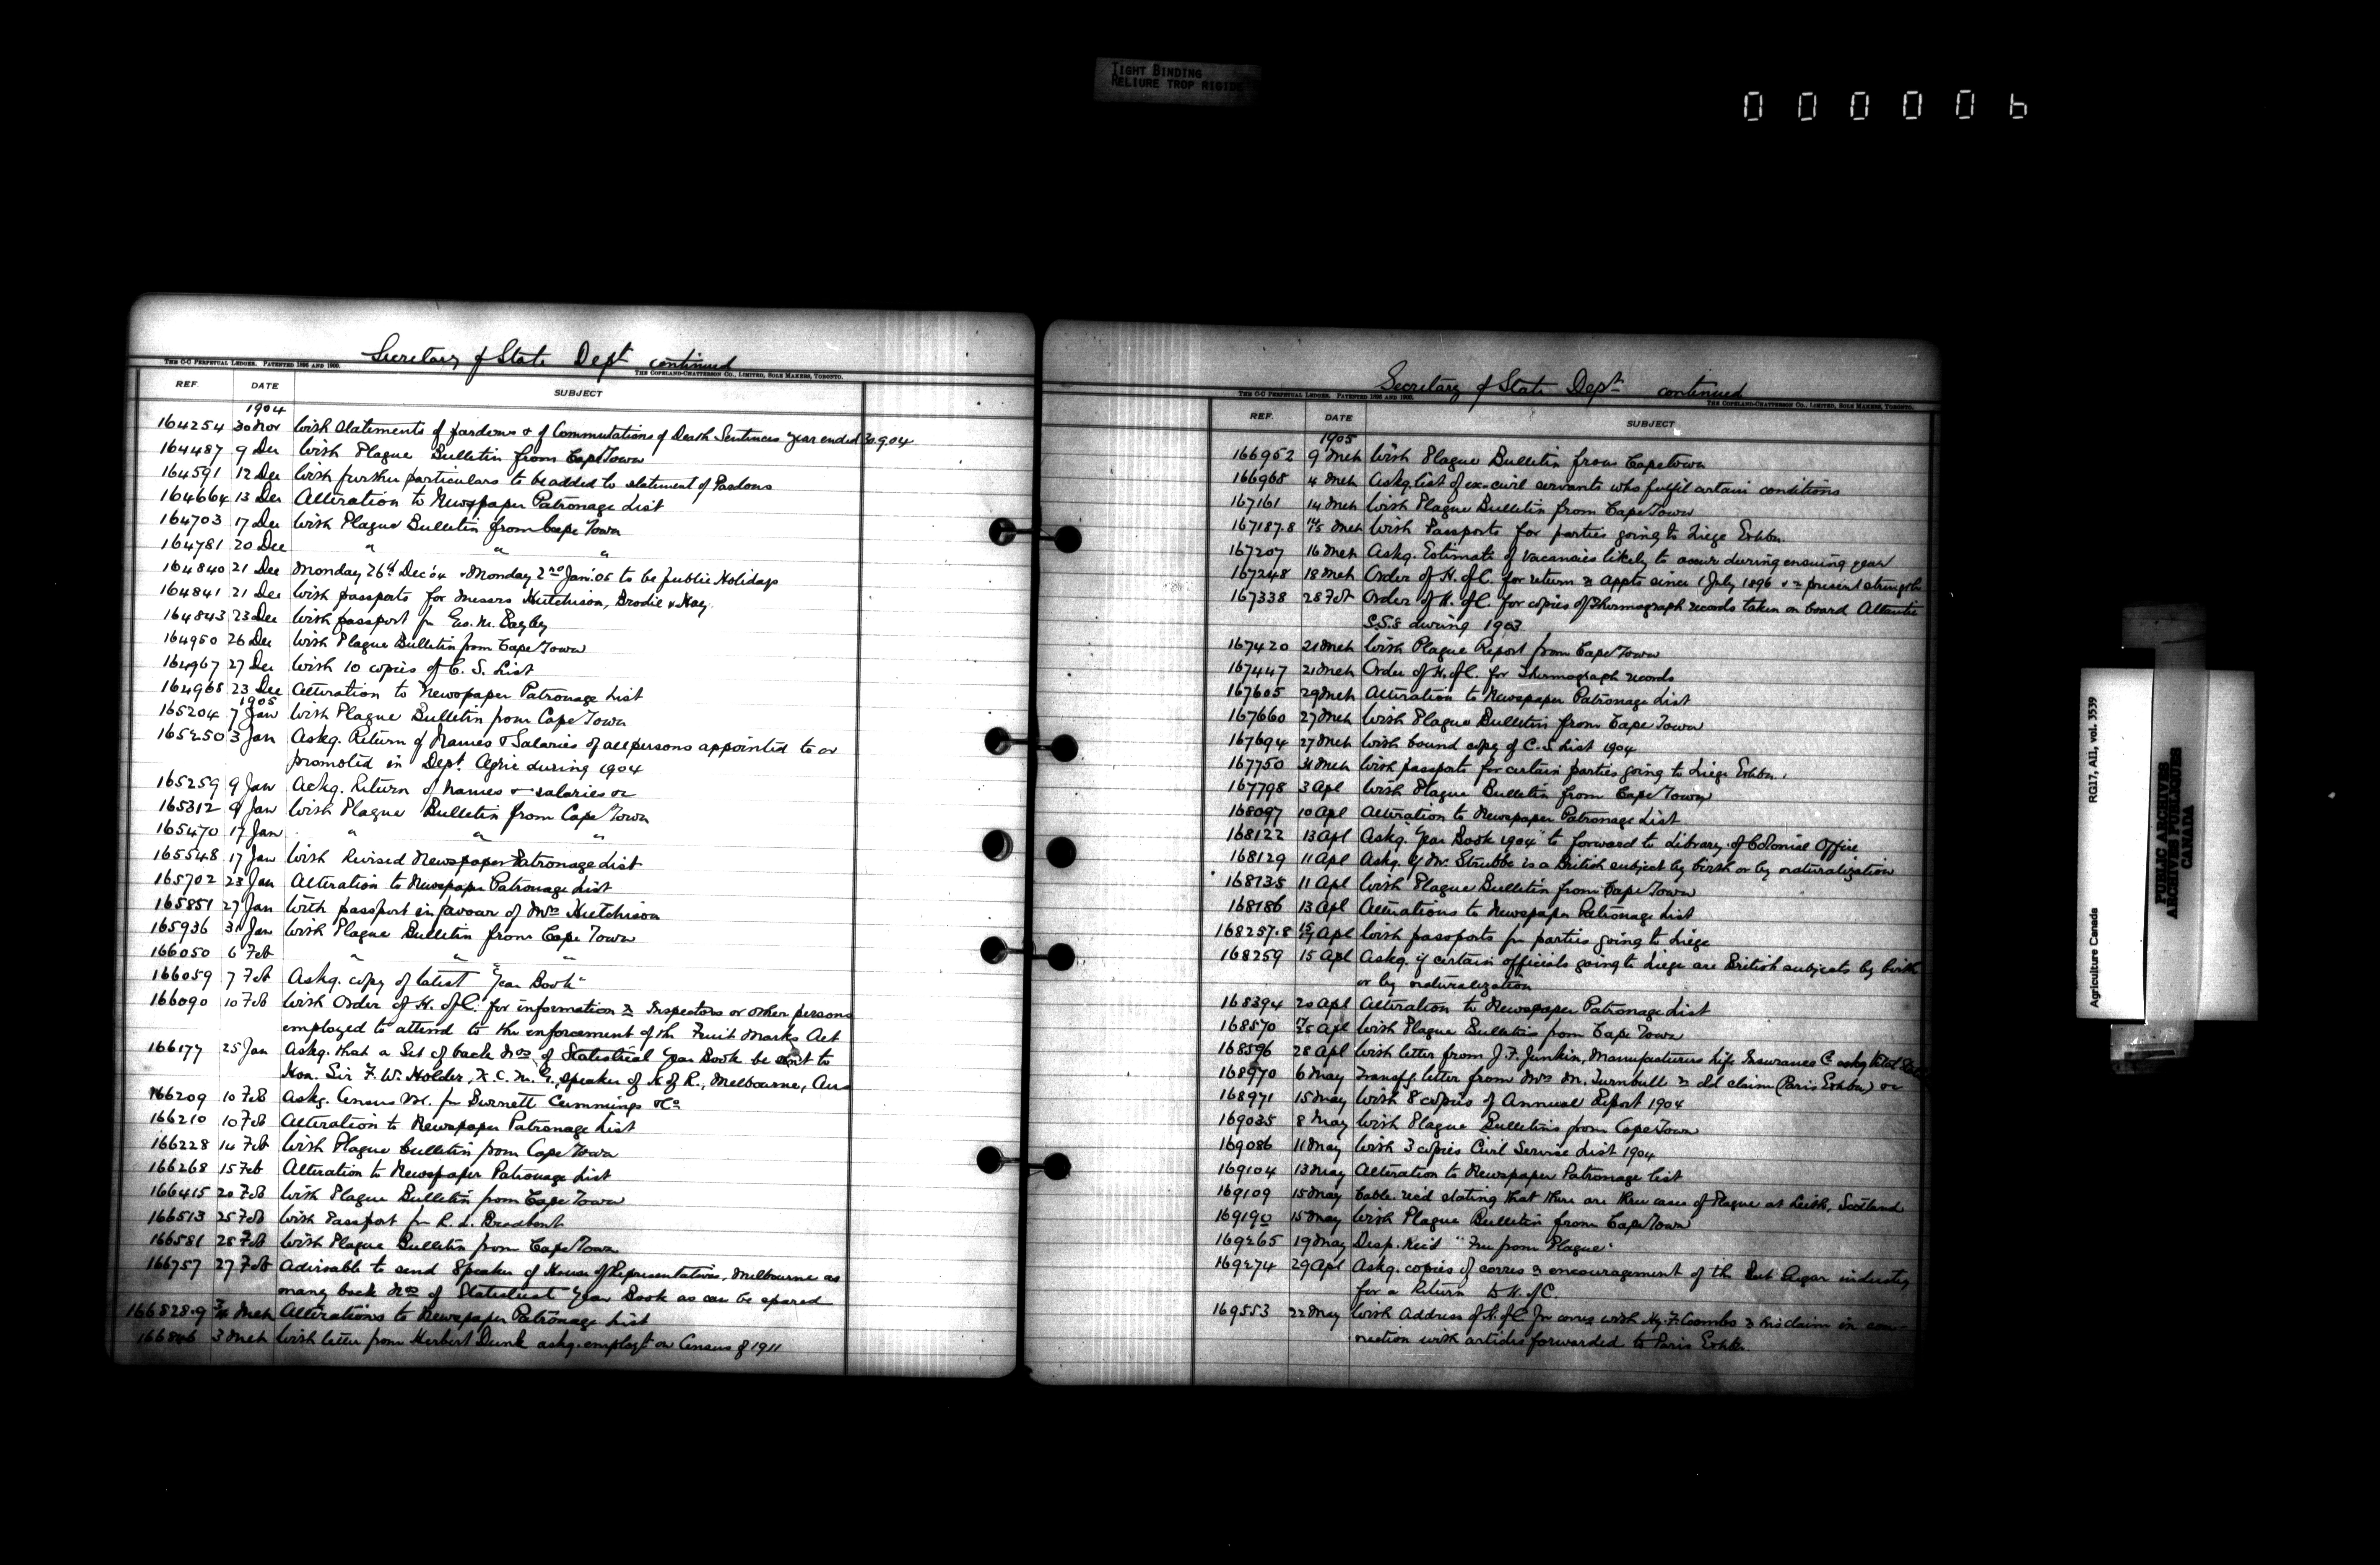 TIGHT BINDING
RELIURE TROP RIGIDE
000006
Secretary of State Dept continued
THE C-C PERPETUAL LEDGER. PATENTED 1896 AND 1900.
THE COPELAND-CHATTERSON CO., LIMITED, SOLE MAKERS, TORONTO.
REF. DATE SUBJECT
1904
164254 30 Nov With Statements of pardons & of Commutations of Death Sentences year ended 30.9.04
164487 9 Dec With Plague Bulletin from Cape Town
164591 12 Dec With further particulars to be added to statement of Pardons
164664 13 Dec Alteration to Newspaper Patronage List
164703 17 Dec With Plague Bulletin from Cape Town
164781 20 Dec " " "
164840 21 Dec Monday 26th Dec '04 & Monday 2nd Jan. '05 to be public Holidays
164841 21 Dec With passports for Messrs Hutchison, Brodie & Hay
164843 23 Dec With passport for Geo. M. Bayley
164950 26 Dec With Plague Bulletin from Cape Town
164967 27 Dec With 10 copies of C. S. List
164968 23 Dec Alteration to Newspaper Patronage List
1905
165204 7 Jan With Plague Bulletin from Cape Town
165250 3 Jan Askg. Return of Names & Salaries of all persons appointed to or
promoted in Dept. Agric during 1904
165259 9 Jan Askg. Return of names & salaries &c
165312 9 Jan With Plague Bulletin from Cape Town
165470 17 Jan " " "
165548 17 Jan With Revised Newspaper Patronage List
165702 23 Jan Alteration to Newspaper Patronage List
165851 27 Jan With passport in favour of Mrs Hutchison
165936 31 Jan With Plague Bulletin from Cape Town
166050 6 Feb " " "
166059 7 Feb Askg. copy of latest "Year Book"
166090 10 Feb With Order of H. of C. for information re Inspectors or other persons
employed to attend to the enforcement of the Fruit Marks Act
166177 25 Jan Askg. that a Set of back Nos of Statistical Year Book be sent to
Hon. Sir F. W. Holder, K. C. M. G., Speaker of H of R., Melbourne, Aus
166209 10 Feb Askg. Census for Burnett Cummings & Co
166210 10 Feb Alteration to Newspaper Patronage List
166228 14 Feb With Plague Bulletin from Cape Town
166268 15 Feb Alteration to Newspaper Patronage List
166415 20 Feb With Plague Bulletin from Cape Town
166513 25 Feb With Passport for R. L. Broadbent
166581 28 Feb With Plague Bulletin from Cape Town
166757 27 Feb Advisable to send Speaker of House of Representatives, Melbourne as
many back Nos of Statistical Year Book as can be spared
166828.9 Mch Alterations to Newspaper Patronage List
166846 3 Mch With letter from Herbert Dunk askg. employt on Census of 1911
Secretary of State Dept continued
THE C-C PERPETUAL LEDGER. PATENTED 1896 AND 1900.
THE COPELAND-CHATTERSON CO., LIMITED, SOLE MAKERS, TORONTO.
REF. DATE SUBJECT
1905
166952 9 Mch With Plague Bulletin from Capetown
166968 4 Mch Askg. list of ex-civil servants who fulfil certain conditions
167161 14 Mch With Plague Bulletin from Cape Town
167187.8 14/15 Mch With Passports for parties going to Liege Exhbn.
167207 16 Mch Askg. Estimate of vacancies likely to occur during ensuing year
167248 18 Mch Order of H. of C. for return re appts since 1 July 1896 & re present strength
167338 28 Feb Order of H. of C. for copies of Thermograph records taken on board Atlantic
S.S.s during 1903
167420 21 Mch With Plague Report from Cape Town
167447 21 Mch Order of H. of C. for Thermograph records
167605 29 Mch Alteration to Newspaper Patronage List
167660 27 Mch With Plague Bulletin from Cape Town
167694 27 Mch With bound copy of C. S List 1904
167750 31 Mch With passports for certain parties going to Liege Exhbn.
167798 3 Apl With Plague Bulletin from Cape Town
168097 10 Apl Alteration to Newspaper Patronage List
168122 13 Apl Askg. "Year Book 1904" to forward to Library of Colonial Office
168129 11 Apl Askg. if Mr. Strubbe is a British subject by birth or by naturalization
168135 11 Apl With Plague Bulletin from Cape Town
168186 13 Apl Alterations to Newspaper Patronage List
168257.8 Apl With passports for parties going to Liege
168259 15 Apl Askg. if certain officials going to Liege are British subjects by birth
or by naturalization
168394 20 Apl Alteration to Newspaper Patronage List
168570 Apl With Plague Bulletins from Cape Town
168596 28 Apl With letter from J. F. Junkin, Manufacturers Life Insurance Co askg
168970 6 May Transfg. letter from Mrs M. Turnbull re old claim (Paris Exhbn) &c
168971 15 May With 8 copies of Annual Report 1904
169035 8 May With Plague Bulletins from Cape Town
169086 11 May With 3 copies Civil Service List 1904
169104 13 May Alteration to Newspaper Patronage List
169109 15 May Cable rec'd stating that there are three cases of Plague at Leith, Scotland
169190 15 May With Plague Bulletin from Cape Town
169265 19 May Desp. Rec'd "Free from Plague"
169274 29 Apl Askg. copies of corres re encouragement of the Beet Sugar industry
for a Return to H. of C.
169553 22 May With Address of H. of C for corres with Hy. F. Coombs re his claim in con-
nection with articles forwarded to Paris Exhbn.
Agriculture Canada RG17, AII, vol. 3539
PUBLIC ARCHIVES
ARCHIVES PUBLIQUES
CANADA